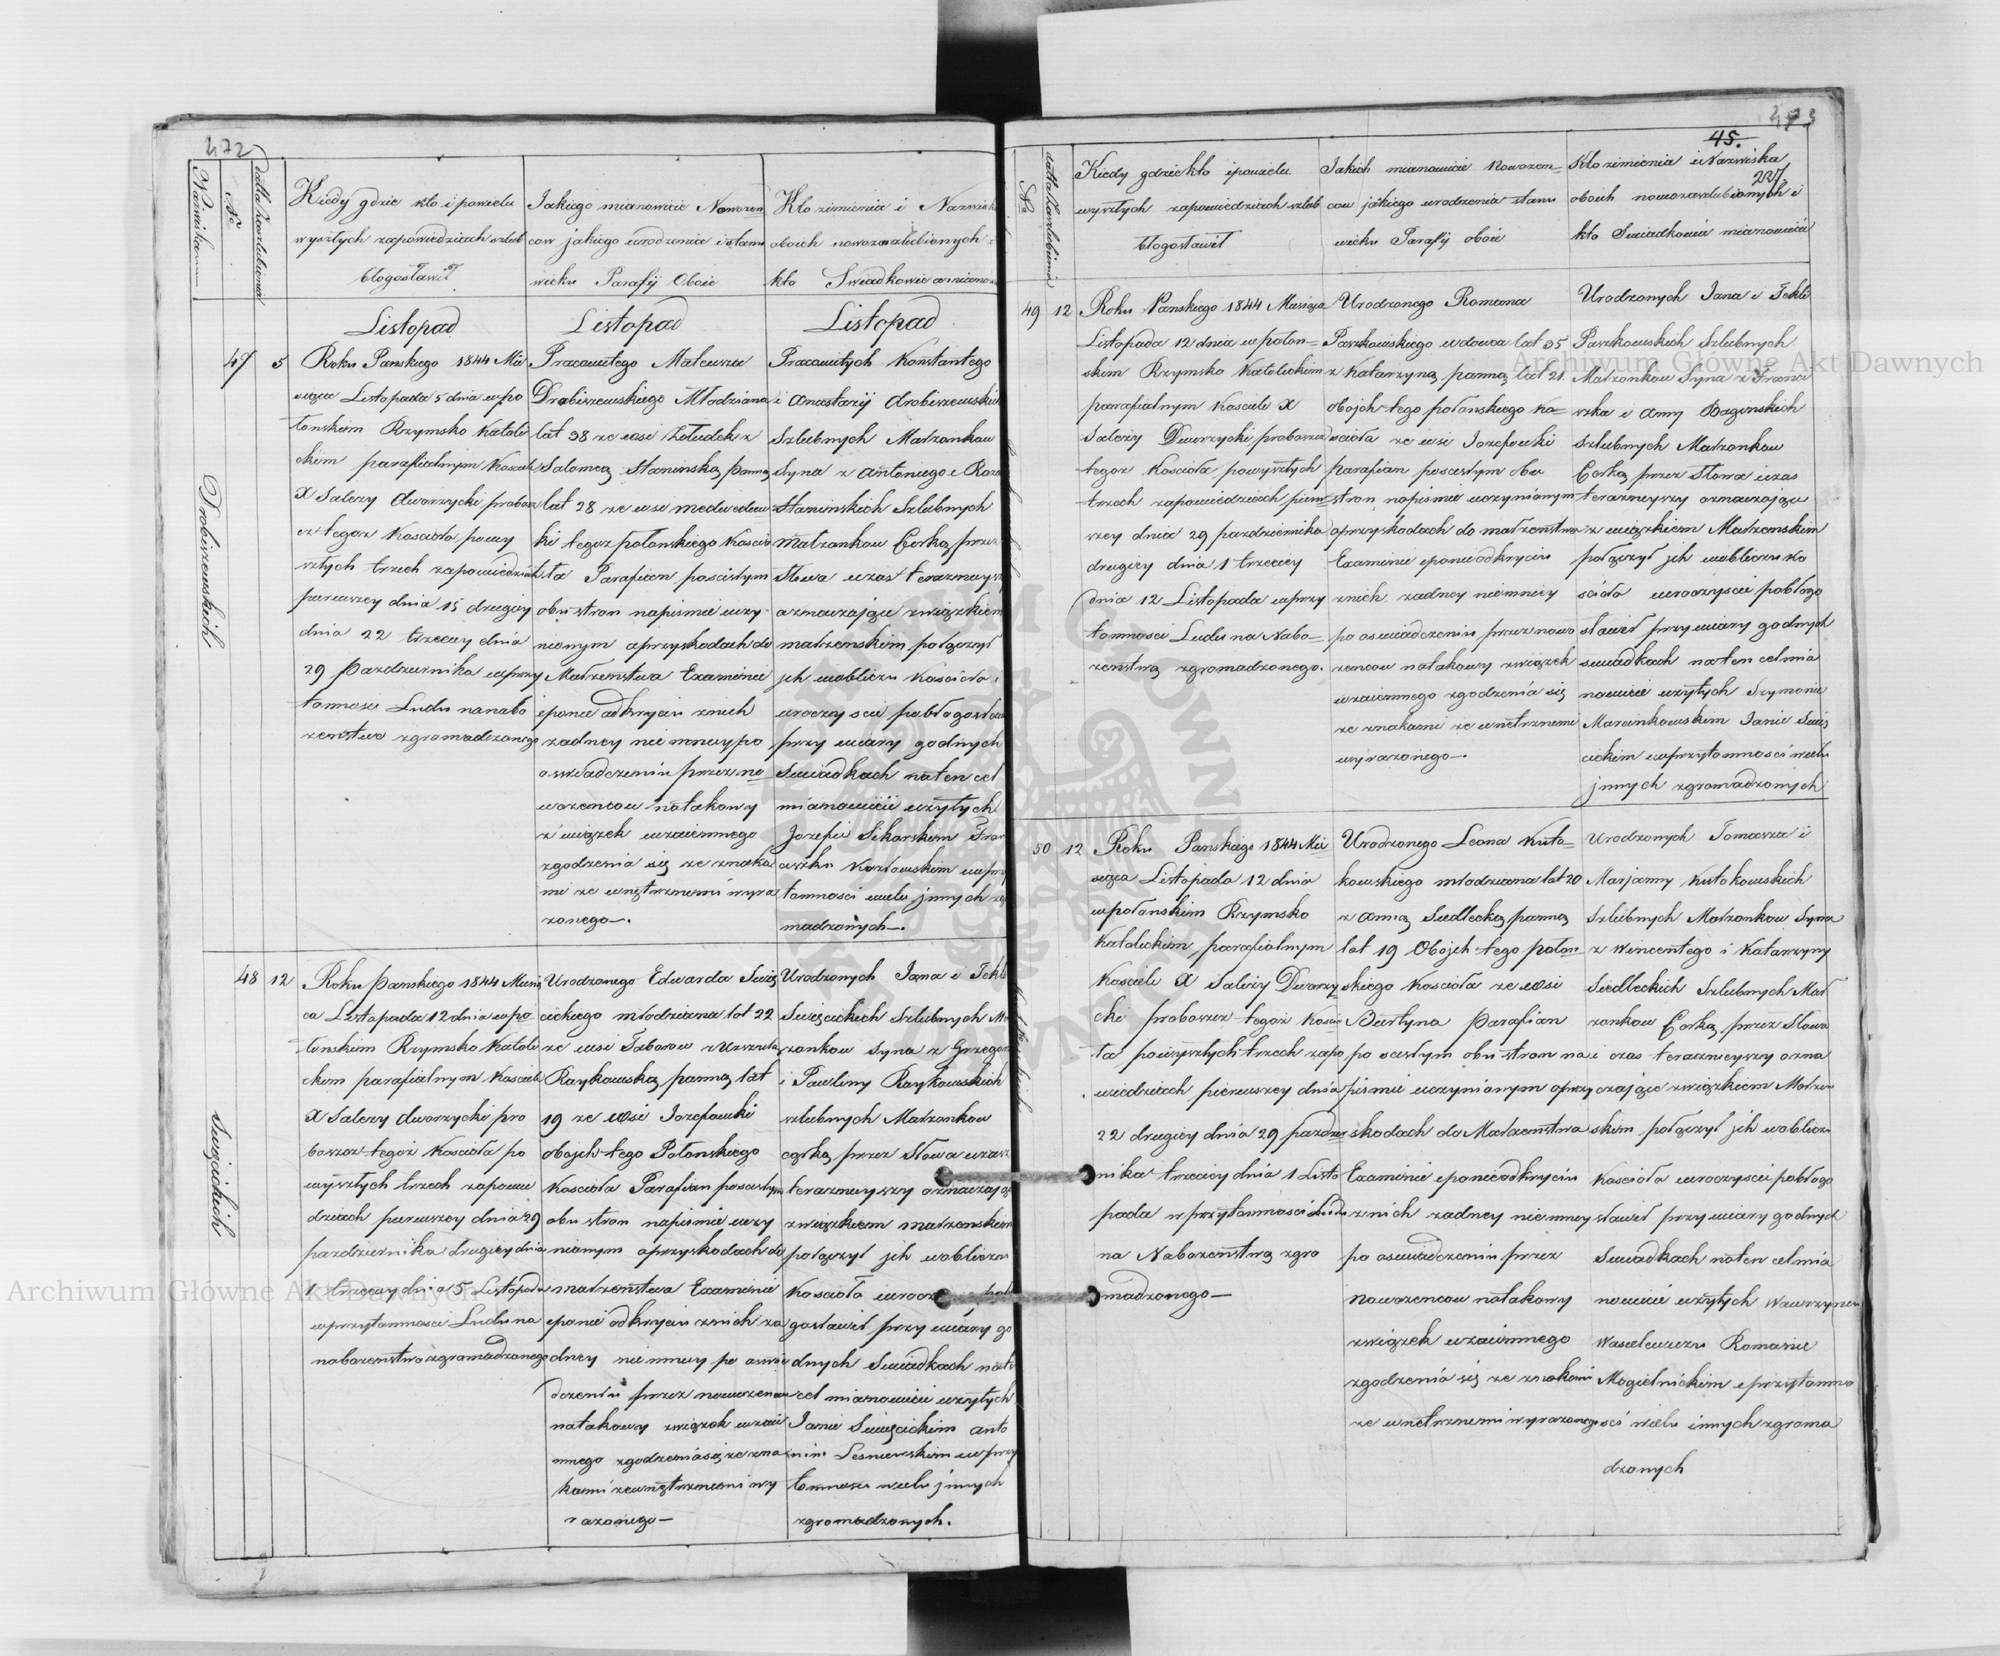 472
Nazwiska
No
datta zaszlubienia
Kiedy gdzie kto i powielu
wyszłych zapowiedziach szlub
błogosławił
Jakiego mianowicie Nowozen
cow jakiego urodzenia istanu
wieku Parafij Oboie
Kto zimienia i Nazwisk
oboich nowozaszlubionych i
kto Swiadkowie
Listopad
Listopad
Listopad
Drobiszewskich
47
5
Roku Panskiego 1844 Mie
siąca Listopada 5 dnia wpo
łonskim Rzymsko Katoli
ckim parafialnym Kosciele
X Salezy Dworzycki probosz
cz tegoz Kosciola powy
szłych trzech zapowiedziach
pierwszey dnia 15 drugiey
dnia 22 trzeciey dnia
29 Pazdziernika wprzy
tomnosci Ludu nanabo
zenstwo zgromadzonego
Pracowitego Mateusza
Drobiszewskiego Młodziana
lat 38 ze wsi Zoludek z
Salomeą Staninską Panną
lat 28 ze wsi Medwedow
ki tegoz połonskiego Koscio
ła Parafian poscisłym
obu stron napismie uczy
nionym oprzyskodach do
Małzenstwa Examinie
iponie odkryciu znich
zadney nie mniey po
oswiadczeniu przez no
wozencow natakowy
związek wzaiemnego
zgodzenia się ze znaka
mi ze wnętrznemi wyra
zonego—.
Pracowitych Konstantego
i Anastazij Drobiszewskich
Szlubnych Małzonkow
Syna z Antoniego i Roza
Staninskich Szlubnych
Małzonkow Corką przez
Słowa wczas terazniejszy
oznaczające związkiem
małzenskim połączył
jch wobliczu Kosciola i
uroczyscie pobłogosław
przy wiary godnych
Swiadkach naten cel
mianowicie uzytych
Jozefie Sikorskim Fran
ciszku Kozłowskim wprzy
tomnosci wielu jnnych zgro
madzonych—.
Swięcickich
48
12
Roku Panskiego 1844 Miesią
ca Listopada 12 dnia wpo
łonskim Rzymsko Katoli
ckim parafialnym Kosciele
X Salezy Dworzycki pro
boszcz tegoz Kosciola po
wyszłych trzech zapowie
dziach pierwszey dnia 29
pazdziernika drugiey dnia
1 trzeciey dnia 5 Listopada
wprzytomnosci Ludu na
nabozenstwo zgromadzonego
Urodzonego Edwarda Swię
cickiego młodziana lat 22
ze wsi Taborow z Urszulą
Raykowską panną lat
19 ze wsi Jozefowki
obojch tego Połonskiego
Kosciola Parafian poscisłym
obu stron napismie uczy
nionym oprzyskodach do
małzenstwa Examinie
iponie odkryciu znich za
dney nie mniey po oswia
dczeniu przez nowozencow
natakowy związek wzaie
mnego zgodzenia się ze zna
kami zewnętrznemi wy
razonego—
Urodzonych Jana i Tekli
Swięcickich Szlubnych Ma
zonkow Syna z Grzegorz
i Pauliny Raykowskich
szlubnych Małzonkow
corką przez Słowa wczas
terazniejszy oznaczające
związkiem małzenskim
połączył jch wobliczu
Kosciola
gosławił przy wiary go
dnych Swiadkach naten
cel mianowicie uzytych
Janie Swięcickim Anto
nim Lesniewskim wprzy
tomnosci wielu jnnych
zgromadzonych.
473
45.
227.
No
datta zaszlubienia
Kiedy gdzie kto ipowielu
wyszłych zapowiedziach szlub
błogosławił
Jakich mianowicie Nowozen=
cow jakiego urodzenia stanu
wieku Parafij oboie
Kto zimienia i Nazwiska
oboich nowozaszlubionych i
kto Swiadkowie mianowicie
49
12
Roku Panskiego 1844 Miesiąca
Listopada 12 dnia wpołon=
skim Rzymsko Katolickim
parafialnym Kosciele X
Salezy Dworzycki proboszcz
tegoz Kosciola powyszłych
trzech zapowiedziach pierw=
szey dnia 29 pazdziernika
drugiey dnia 1 trzeciey
dnia 12 Listopada wprzy
tomnosci Ludu na Nabo=
zenstwo zgromadzonego.
Urodzonego Romana
Paszkowskiego wdowca lat 35
z Katarzyną panną lat 21
obojch tego połonskiego Ko=
sciola ze wsi Jozefowki
parafian poscisłym obu
stron napismie uczynionym
oprzyskodach do małzenstwa
Examinie iponie odkryciu
znich zadney niemniey
po oswiadczeniu przez nowo
zencow natakowy związek
wzaiemnego zgodzenia się
ze znakami ze wnetrznemi
wyrazonego—.
Urodzonych Jana i Tekli
Paszkowskich Szlubnych
Malzonkow Syna z Franci
szka i Anny Baginskich
Szlubnych Małzonkow
Corką przez Słowa wczas
terazniejszy oznaczające
związkiem Małzenskim
połączył jch wobliczu Ko
sciola uroczyscie pobłogo
sławił przy wiary godnych
swiadkach naten cel mia
nowicie uzytych Szymonie
Marcinkowskim Janie Swię
cickim wprzytomnosci wielu
jnnych zgromadzonych
50
12
Roku Panskiego 1844 Mie
siąca Listopada 12 dnia
wpołonskim Rzymsko
Katolickim parafialnym
Kosciele X Salezy Dworzy
cki proboszcz tegoz Koscio
ła powyszłych trzech zapo
wiedziach pierwszey dnia
22 drugiey dnia 29 pazdzier
nika trzeciey dnia 1 Listo
pada wprzytomnosci Ludu
na Nabozenstwo zgro
madzonego—
Urodzonego Leona Kuła=
kowskiego młodziana lat 20
z Anną Siedlecką panną
lat 19 Obojch tego połon
skiego Kosciola ze wsi
Burtyna Parafian
po scisłym obu stron na
pismie uczynionym oprzy
skodach do Małzenstwa
Examinie iponieodkryciu
znich zadney niemniey
po oswiadczeniu przez
Nowozencow natakowy
związek wzaiemnego
zgodzenia się ze znakami
ze wnetrznemi wyrazonego
Urodzonych Tomasza i
Marjanny Kułakowskich
Szlubnych Małzonkow Syna
z Wincentego i Katarzyny
Siedleckich Szlubnych Mał
zonkow Corką przez Słowa
i czas terazniejszy ozna
czające związkiem Małzen
skim połączył jch wobliczu
Kosciola uroczyscie pobłogo
sławił przy wiary godnych
Swiadkach naten cel mia
nowicie uzytych Wawrzyncu
Wasilewiczu Romanie
Mogielnickim iprzytomno
sci wielu innych zgroma
dzonych
Archiwum Główne Akt Dawnych
Archiwum Główne Akt Dawnych